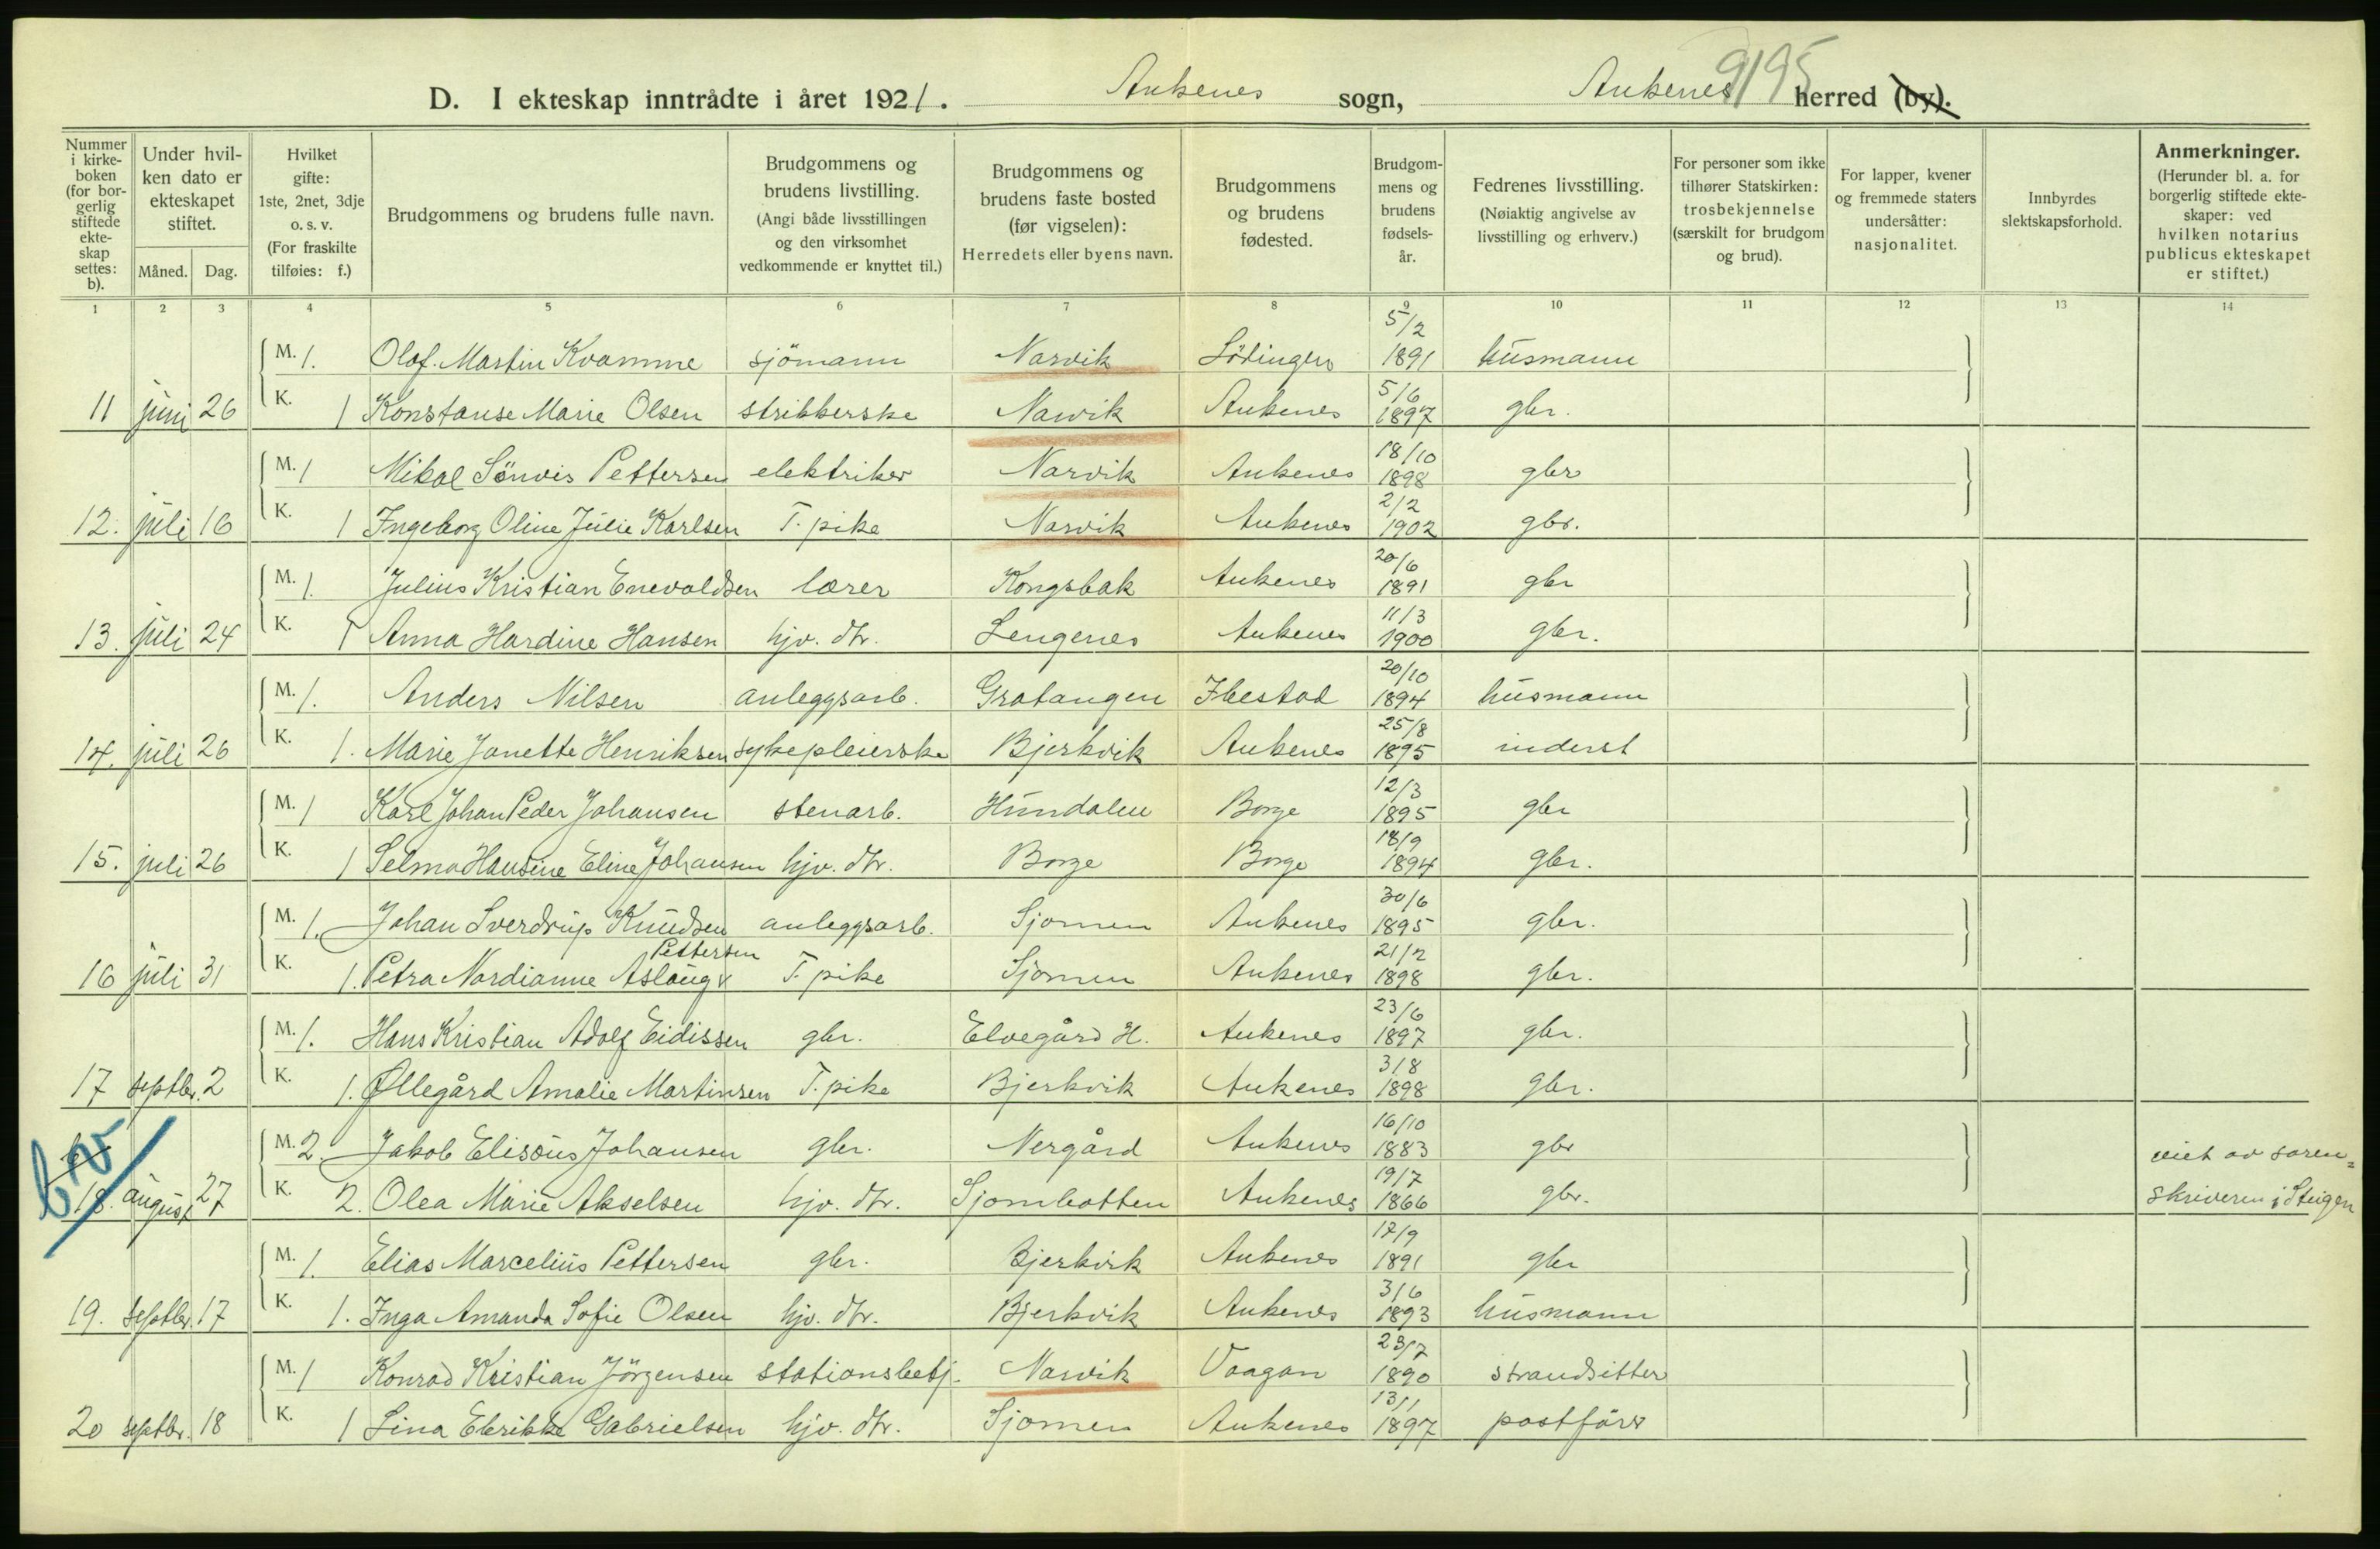 9195
D. I ekteskap inntrådte i året 1921. Ankenes sogn, Ankenes herred (by).
Nummer i kirkeboken (for borgerlig stiftede ekteskap settes: b).
Under hvilken dato er ekteskapet stiftet.
Måned. Dag.
Hvilket gifte: 1ste, 2net, 3dje o. s. v. (For fraskilte tilføies: f.)
Brudgommens og brudens fulle navn.
Brudgommens og brudens livstilling. (Angi både livsstillingen og den virksomhet vedkommende er knyttet til.)
Brudgommens og brudens faste bosted (før vigselen): Herredets eller byens navn.
Brudgommens og brudens fødested.
Brudgommens og brudens fødselsår.
Fedrenes livsstilling. (Nøiaktig angivelse av livsstilling og erhverv.)
For personer som ikke tilhører Statskirken: trosbekjennelse (særskilt for brudgom og brud).
For lapper, kvener og fremmede staters undersåtter: nasjonalitet.
Innbyrdes slektskapsforhold.
Anmerkninger. (Herunder bl. a. for borgerlig stiftede ekteskaper: ved hvilken notarius publicus ekteskapet er stiftet.)
1 2 3 4 5 6 7 8 9 10 11 12 13 14
M. 1. Olaf Martin Kvamme sjömann Narvik Lödingen 5/2 1891 husmann
11 juni 26 K. 1 Konstanse Marie Olsen strikkerske Narvik Ankenes 5/6 1897 gbr.
M. 1 Mikal Sönvis Pettersen elektriker Narvik Ankenes 18/10 1898 gbr
12. juli 16 K. 1 Ingeborg Oline Julie Karlsen T. pike Narvik Ankenes 2/2 1902 gbr.
M. 1. Julius Kristian Enevoldsen lærer Kongsbak Ankenes 20/6 1891 gbr
13. juli 24 K. 1 Anna Hardine Hansen hjv. dtr. Lengenes Ankenes 11/3 1900 gbr.
M. 1. Anders Nilsen anleggsarb. Gratangen Ibestad 20/10 1894 husmann
14. juli 26 K. 1. Marie Janette Henriksen sykepleierske Bjerkvik Ankenes 25/8 1895 inderst
M. 1 Karl Johan Peder Johansen stenarb. Hundalen Borge 12/3 1895 gbr
15. juli 26 K. 1 Selma Hansine Eline Johansen hjv. dtr. Borge Borge 18/9 1894 gbr.
M. 1. Johan Sverdrup Knudsen anleggsarb. Sjomen Ankenes 30/6 1895 gbr.
Pettersen
16 juli 31 K. 1. Petra Nordianne Aslaug v T. pike Sjomen Ankenes 21/2 1898 gbr.
M. 1. Hans Kristian Adolf Eidissen gbr. Elvegård H. Ankenes 23/6 1897 gbr.
17 septbr. 2 K. 1. Øllegård Amalie Martinsen T. pike Bjerkvik Ankenes 3/8 1898 gbr.
M. 2. Jakob Elisæus Johansen gbr. Nergård Ankenes 16/10 1883 gbr viet av soren=
18. august 27 K. 2. Olea Marie Akselsen hjv. dtr. Sjombotten Ankenes 19/7 1866 gbr. skriveren i Steigen
M. 1. Elias Marcelius Pettersen gbr. Bjerkvik Ankenes 17/9 1891 gbr
19. septbr. 17 K. 1. Inga Amanda Sofie Olsen hjv. dtr. Bjerkvik Ankenes 3/6 1893 husmann
M. 1 Konrad Kristian Jörgensen stationsbetj. Narvik Vaagan 23/7 1890 strandsitter
20 septbr. 18 K. 1 Lina Elerikke Gabrielsen hjv. dtr. Sjomen Ankenes 13/1 1897 postförer